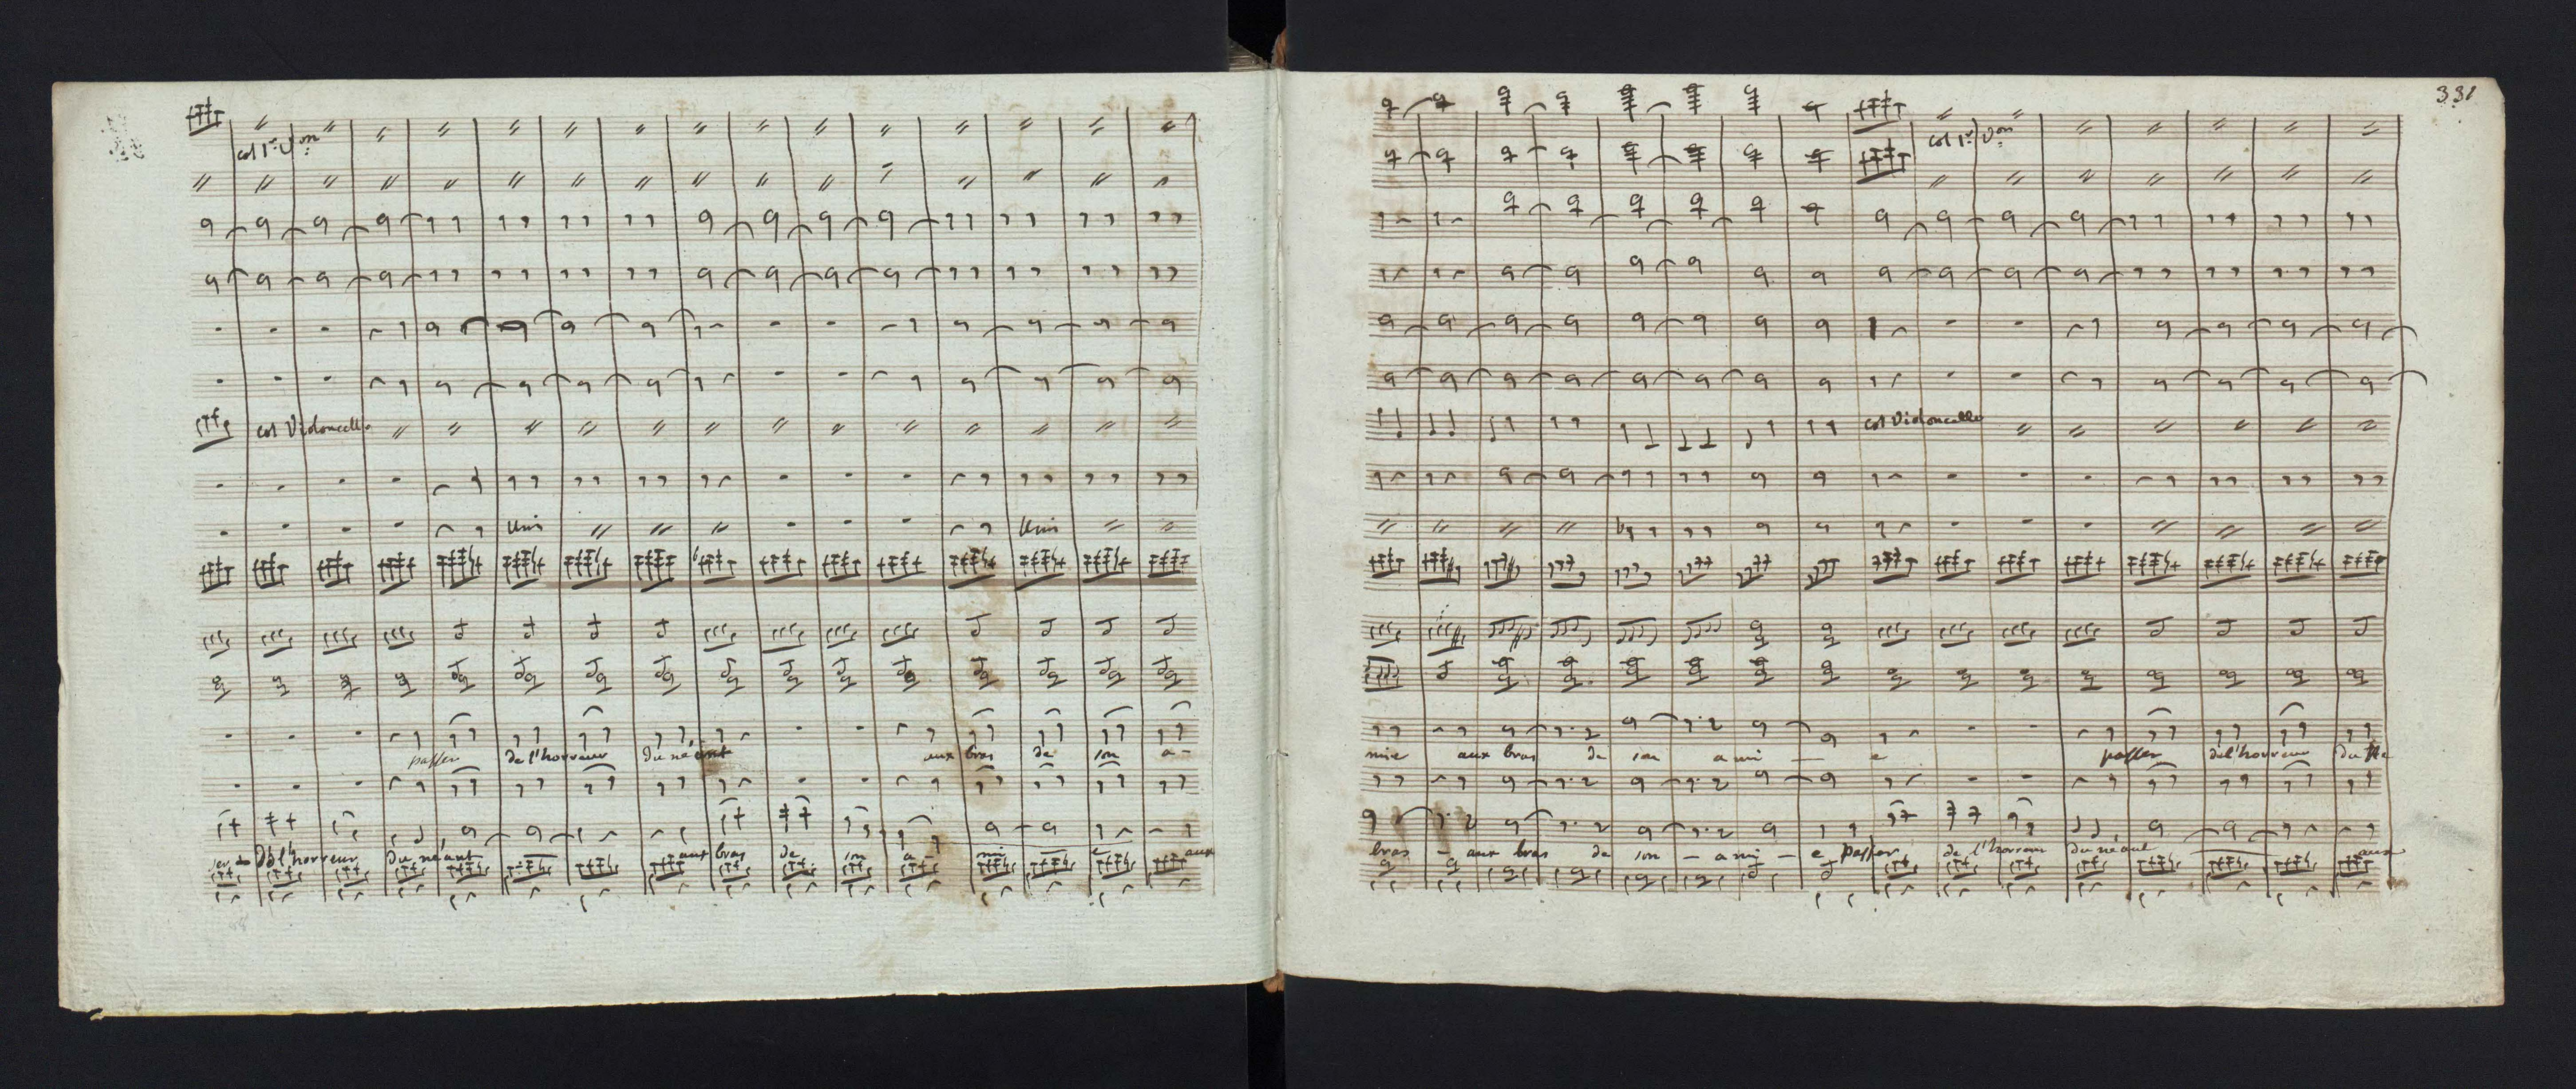 col 1r. Von
col Violoncello
Unis Unis
passer de l'horreur du néant aux bras de son a-
ser de l'horreur du néant aux bras de son a- mi e aux
331
col 1r. Von
col Violoncello
mie aux bras de son ami — e passer de l'horreur du né
bras — aux bras de son — ami — e passer de l'horreur du néant aux